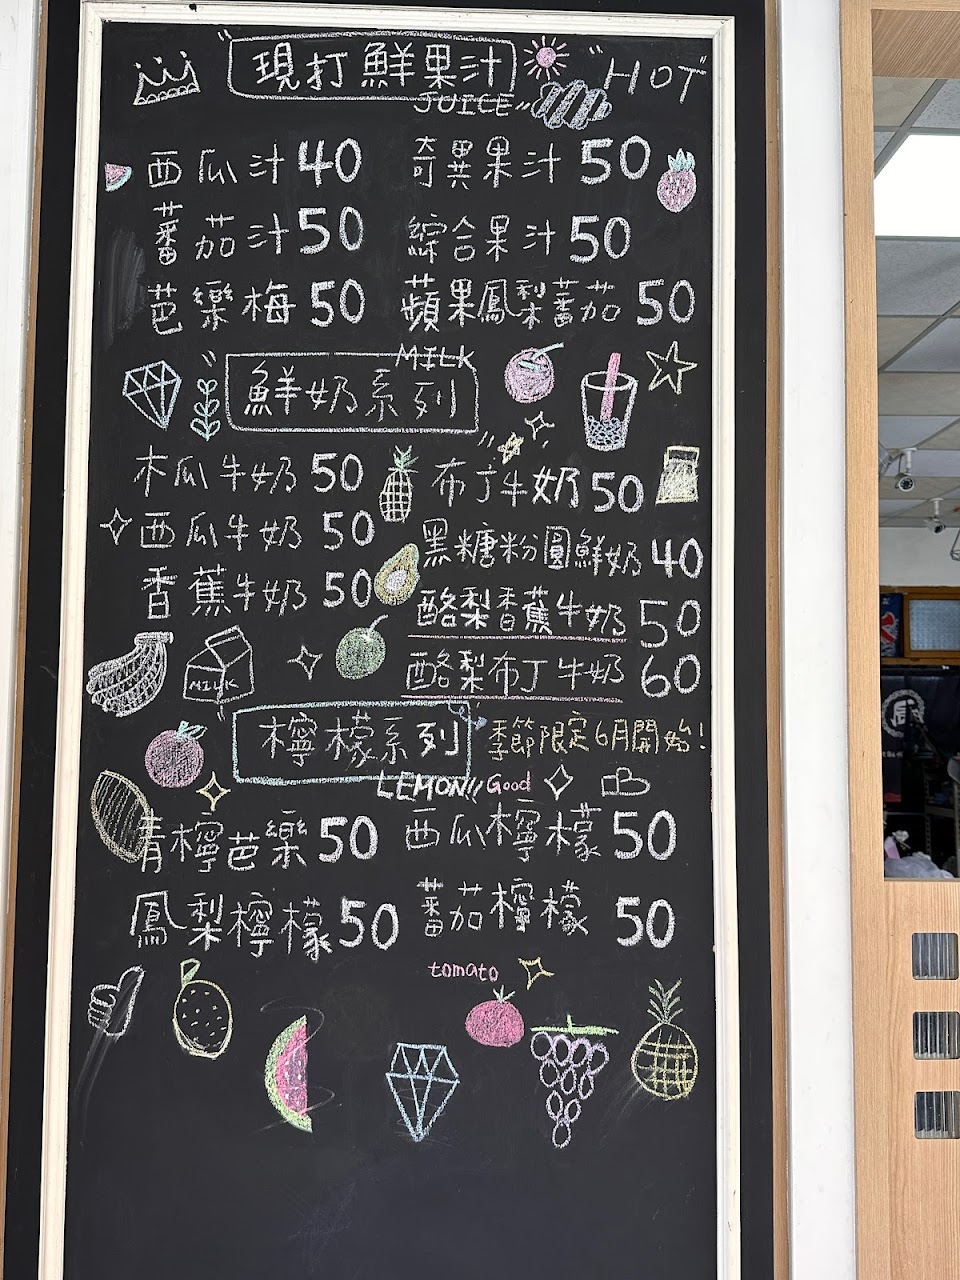 現打鮮果汁
JUICE
"HOT"
西瓜汁40
奇異果汁50
蕃茄汁50
綜合果汁50
芭樂梅50
蘋果鳳梨蕃茄50
MILK
鮮奶系列
木瓜牛奶50
布丁牛奶50
西瓜牛奶50
黑糖粉圓鮮奶40
香蕉牛奶50
酪梨香蕉牛奶50
酪梨布丁牛奶60
MILK
檸檬系列
季節限定6月開始!
LEMON!!
Good
青檸芭樂50
西瓜檸檬50
鳳梨檸檬50
蕃茄檸檬50
tomato